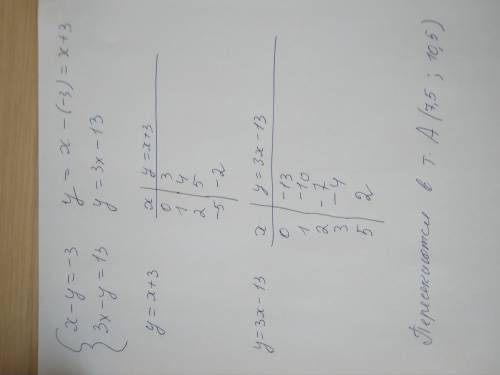 { x - y = -3    y = x - (-3) = x + 3
{ 3x - y = 13    y = 3x - 13
y = x + 3    x | y = x + 3
0 | 3
1 | 4
2 | 5
-5 | -2
y = 3x - 13    x | y = 3x - 13
0 | -13
1 | -10
2 | -7
3 | -4
5 | 2
Пересекаются в т. А (7,5 ; 10,5)